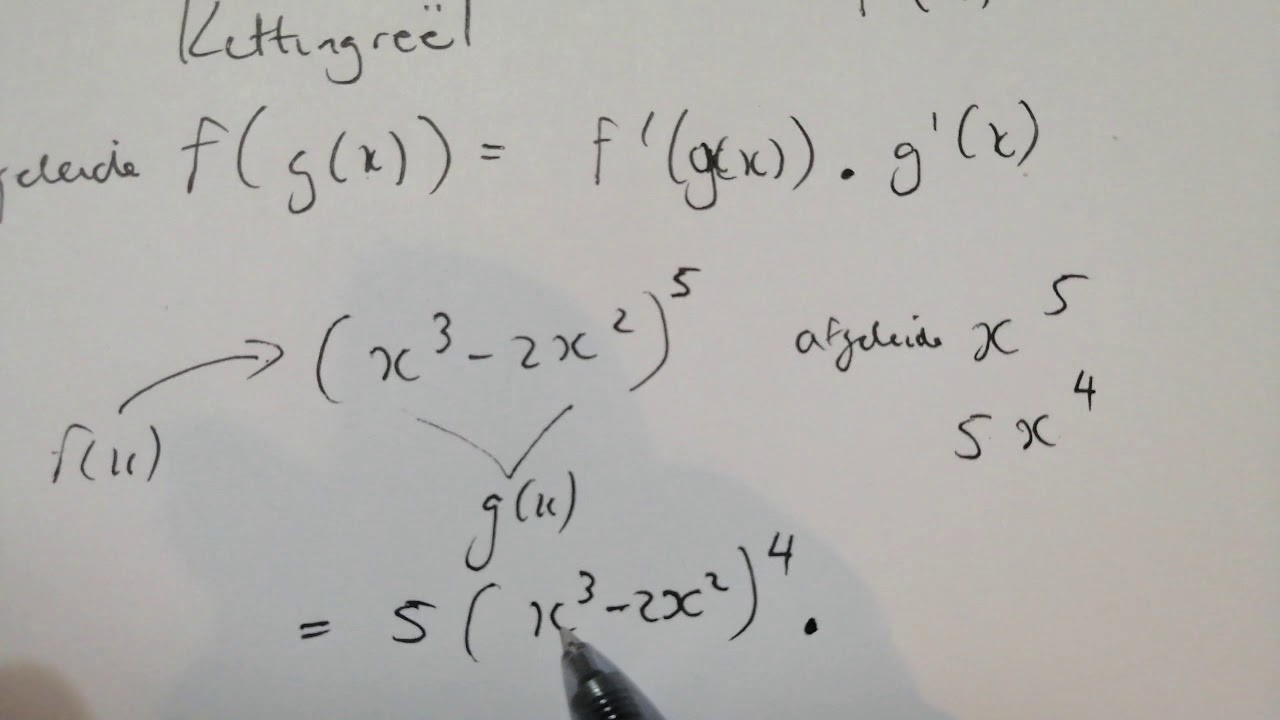 Kettingreël
afgeleide f(g(x)) = f'(g(x)) . g'(x)
(x³ - 2x²)⁵ afgeleide x⁵
5x⁴
f(x)
g(x)
= 5(x³ - 2x²)⁴ .